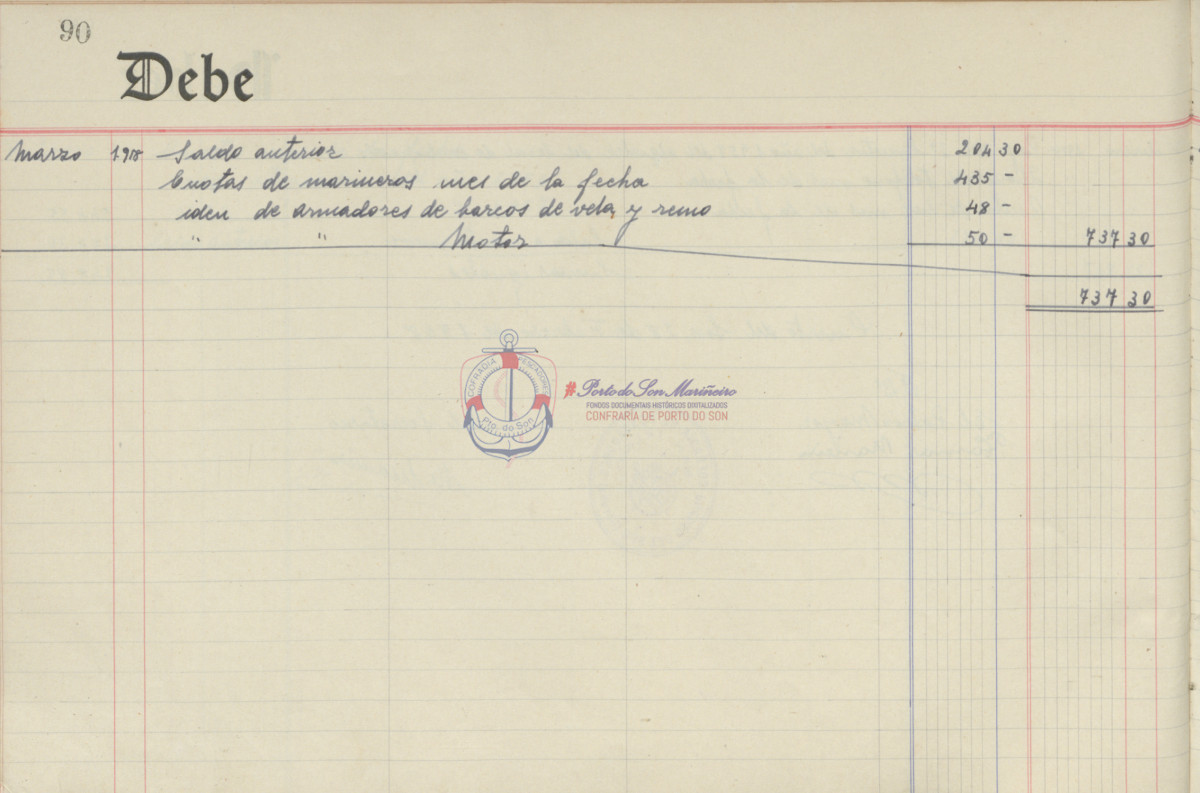 90
Debe
Marzo Saldo anterior 204 30
Cuotas de marineros mes de la fecha 435 -
idem de armadores de barcos de vela y remo 48 -
" " Motor 50 - 737 30
737 30
COFRADIA PESCADORES
Pto. do Son
# Porto do Son Mariñeiro
FONDOS DOCUMENTAIS HISTÓRICOS DIXITALIZADOS
CONFRARÍA DE PORTO DO SON